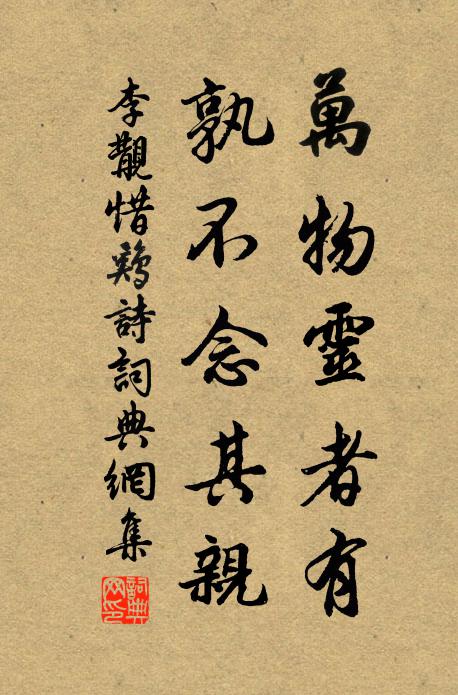 萬物靈者有
孰不念其親
李覯惜鷄詩詞典網集
詞典网印